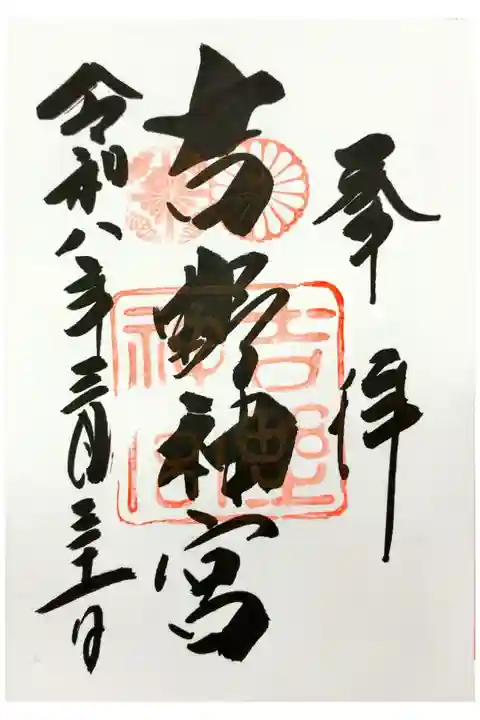 奉拝
吉野神宮
吉野神宮
令和八年三月三十一日